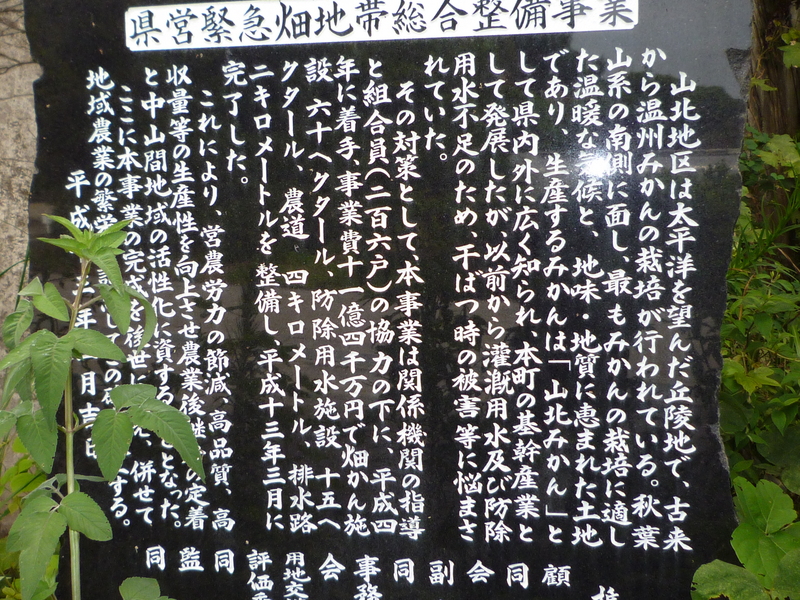 県営緊急畑地帯総合整備事業
山北地区は太平洋を望んだ丘陵地で、古来
から温州みかんの栽培が行われている。秋葉
山系の南側に面し、最もみかんの栽培に適し
た温暖な気候と、地味・地質に恵まれた土地
であり、生産するみかんは「山北みかん」と
して県内外に広く知られ、本町の基幹産業と
して発展したが、以前から灌漑用水及び防除
用水不足のため、干ばつ時の被害等に悩まさ
れていた。
その対策として、本事業は関係機関の指導
と組合員(二百六戸)の協力の下に、平成四
年に着手、事業費十一億四千万円で畑かん施
設 六十ヘクタール、防除用水施設 十五ヘ
クタール、農道 四キロメートル、排水路
二キロメートルを整備し、平成十三年三月に
完了した。
これにより、営農労力の節減、高品質、高
収量等の生産性を向上させ農業後継の定着
と中山間地域の活性化に資するととなった。
ここに本事業の完成を後世に、併せて
地域農業の繁栄してのする。
平成三年月吉日
顧
同
会
副
同
事務
会
用地交
評価
同
監
同